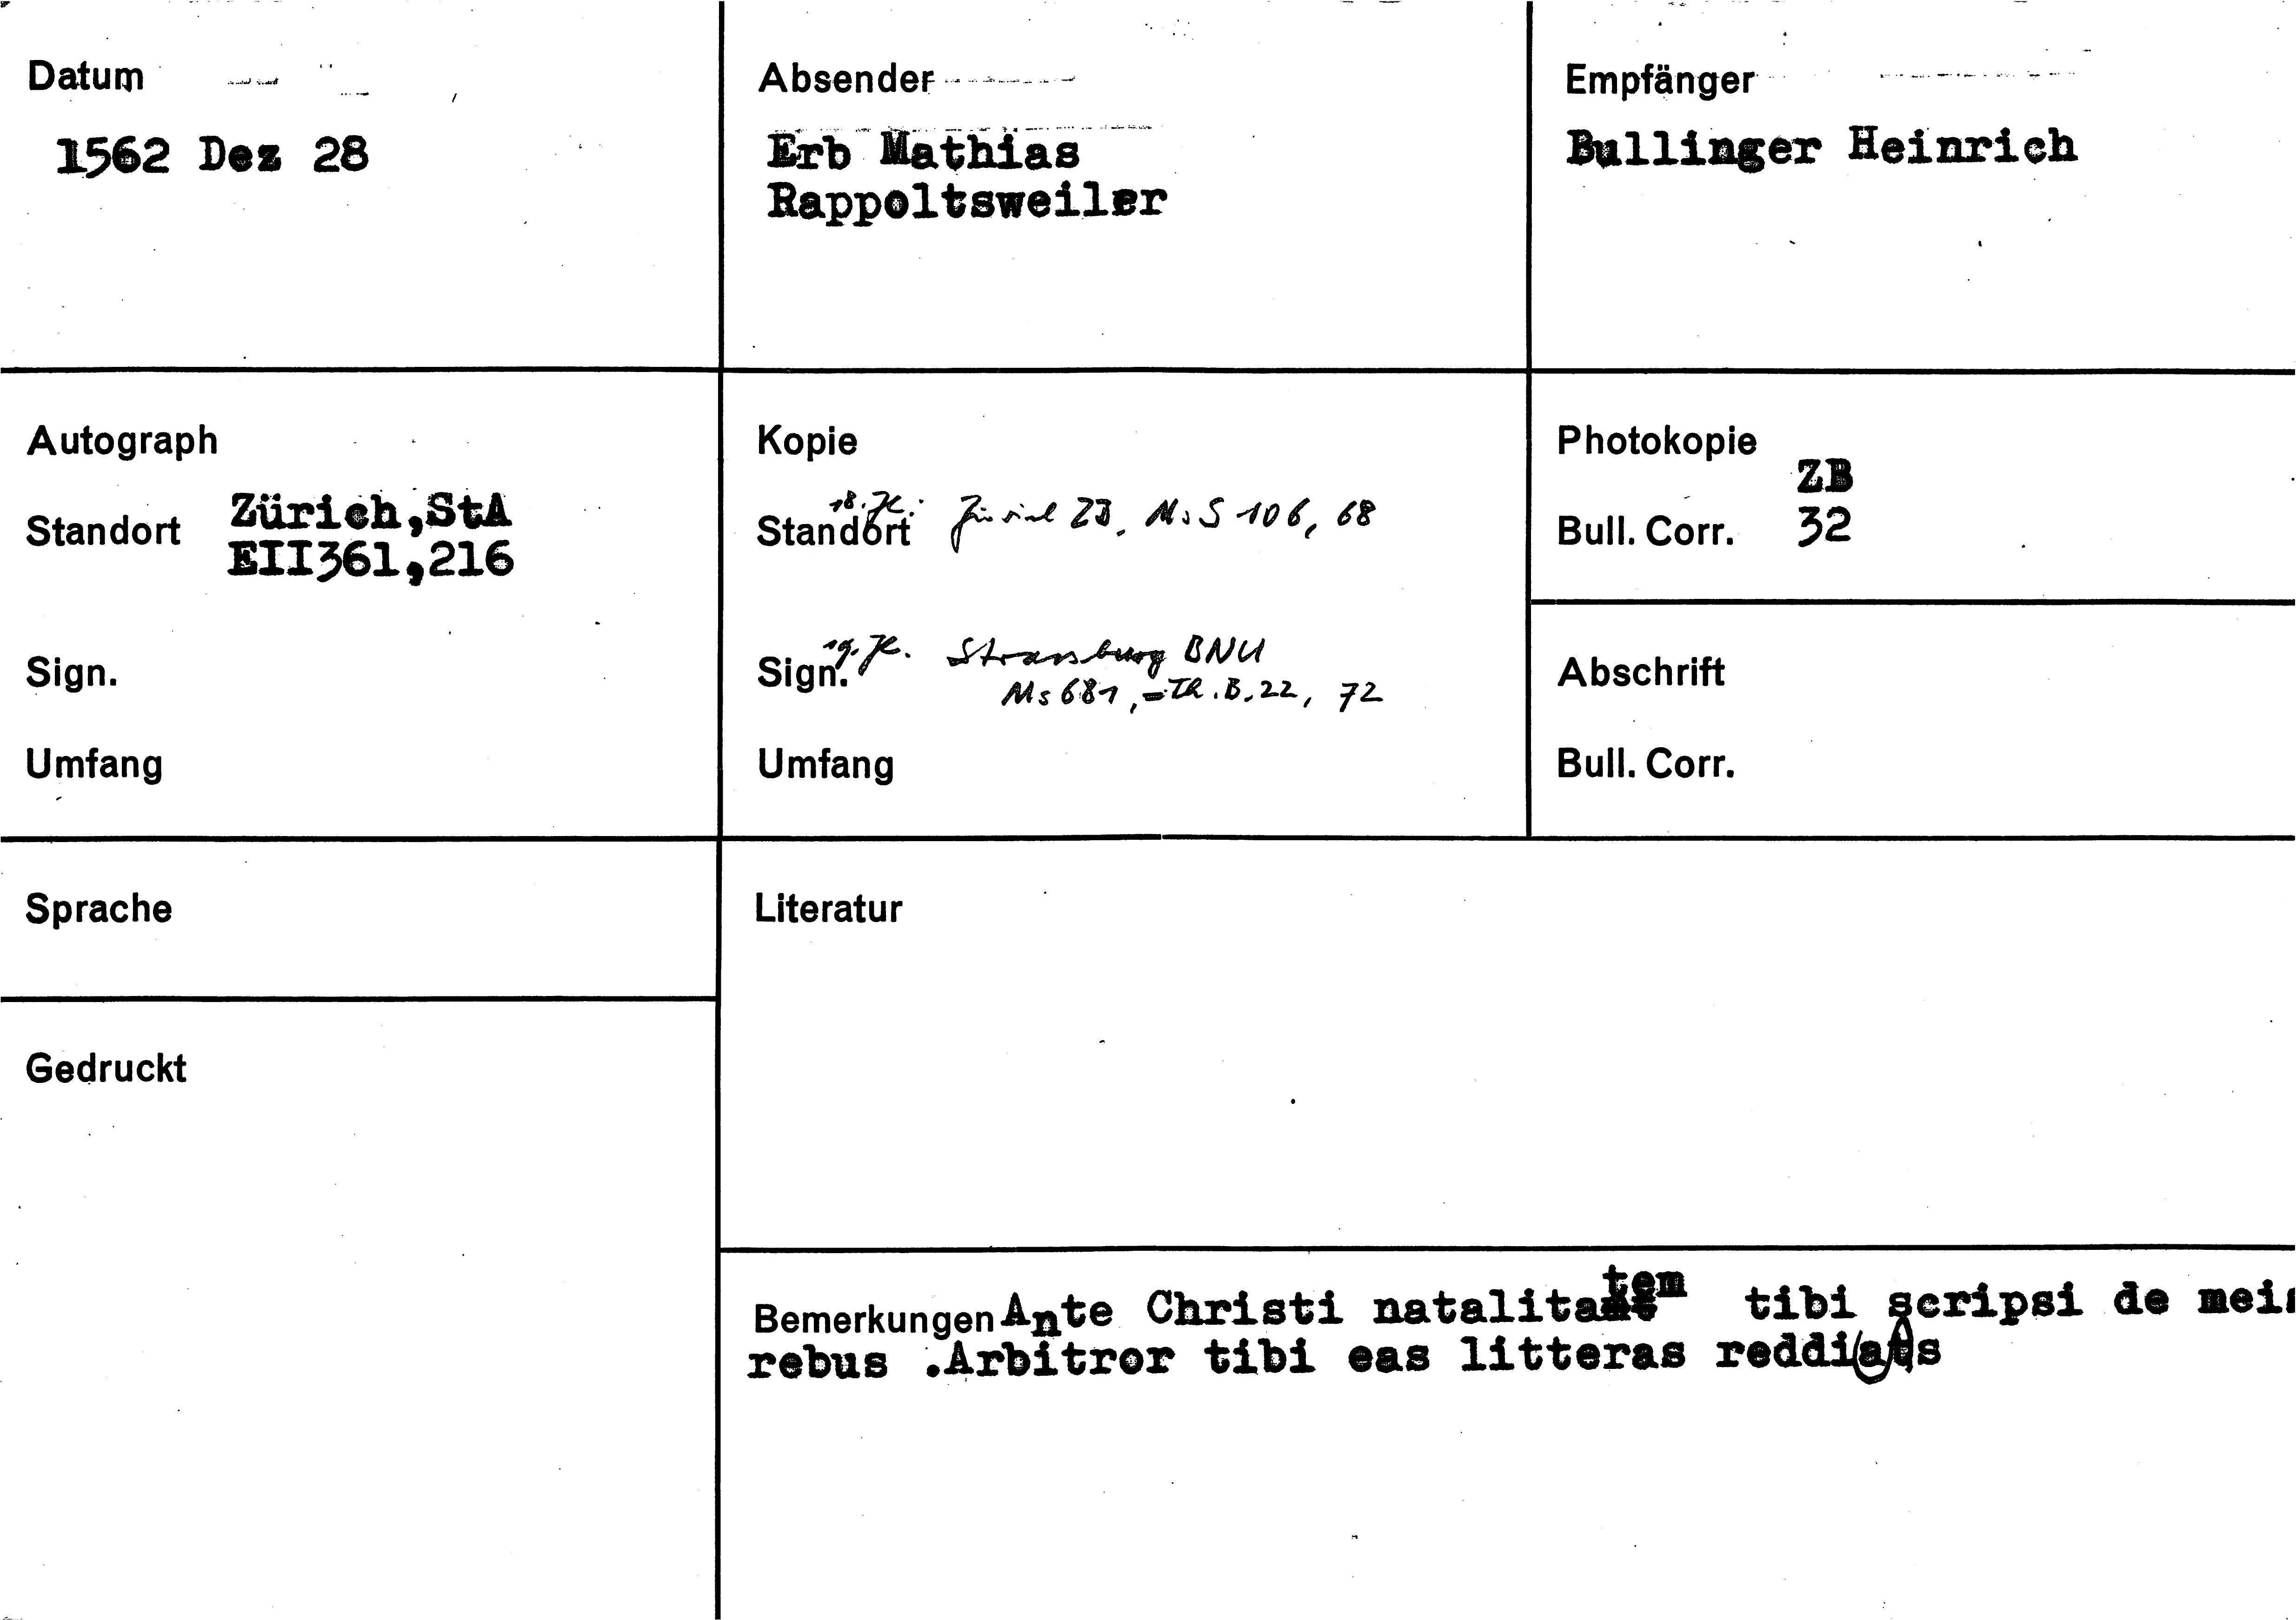 Datum
1562 Dez 28
Absender
Erb Mathias
Rappoltsweiler
Empfänger
Bullinger Heinrich
Autograph
Standort Zürich,StA
EII361,216
Sign.
Umfang
Kopie
18. Jh.:
Standort Zürich ZB, Ms S 106, 68
Sign. 19. Jh. Strassburg BNU
Ms 681, = Th. B. 22, 72
Umfang
Photokopie
ZB
Bull. Corr. 32
Abschrift
Bull. Corr.
Sprache
Literatur
Gedruckt
Bemerkungen Ante Christi natalitatem tibi scripsi de meis
rebus .Arbitror tibi eas litteras